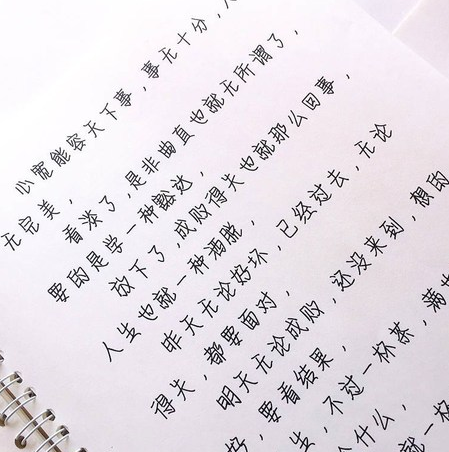 心宽能容天下事，事无十分，人
无完美，
看淡了，是非曲直也就无所谓了，
要的是学一种豁达，
放下了，成败得失也就那么回事，
人生也就一种洒脱，
昨天无论好坏，已经过去，无论
得失，都要面对，
明天无论成败，还没来到，想的
好，要看结果，
生，不过一杯茶，满也
什么，
就一杯